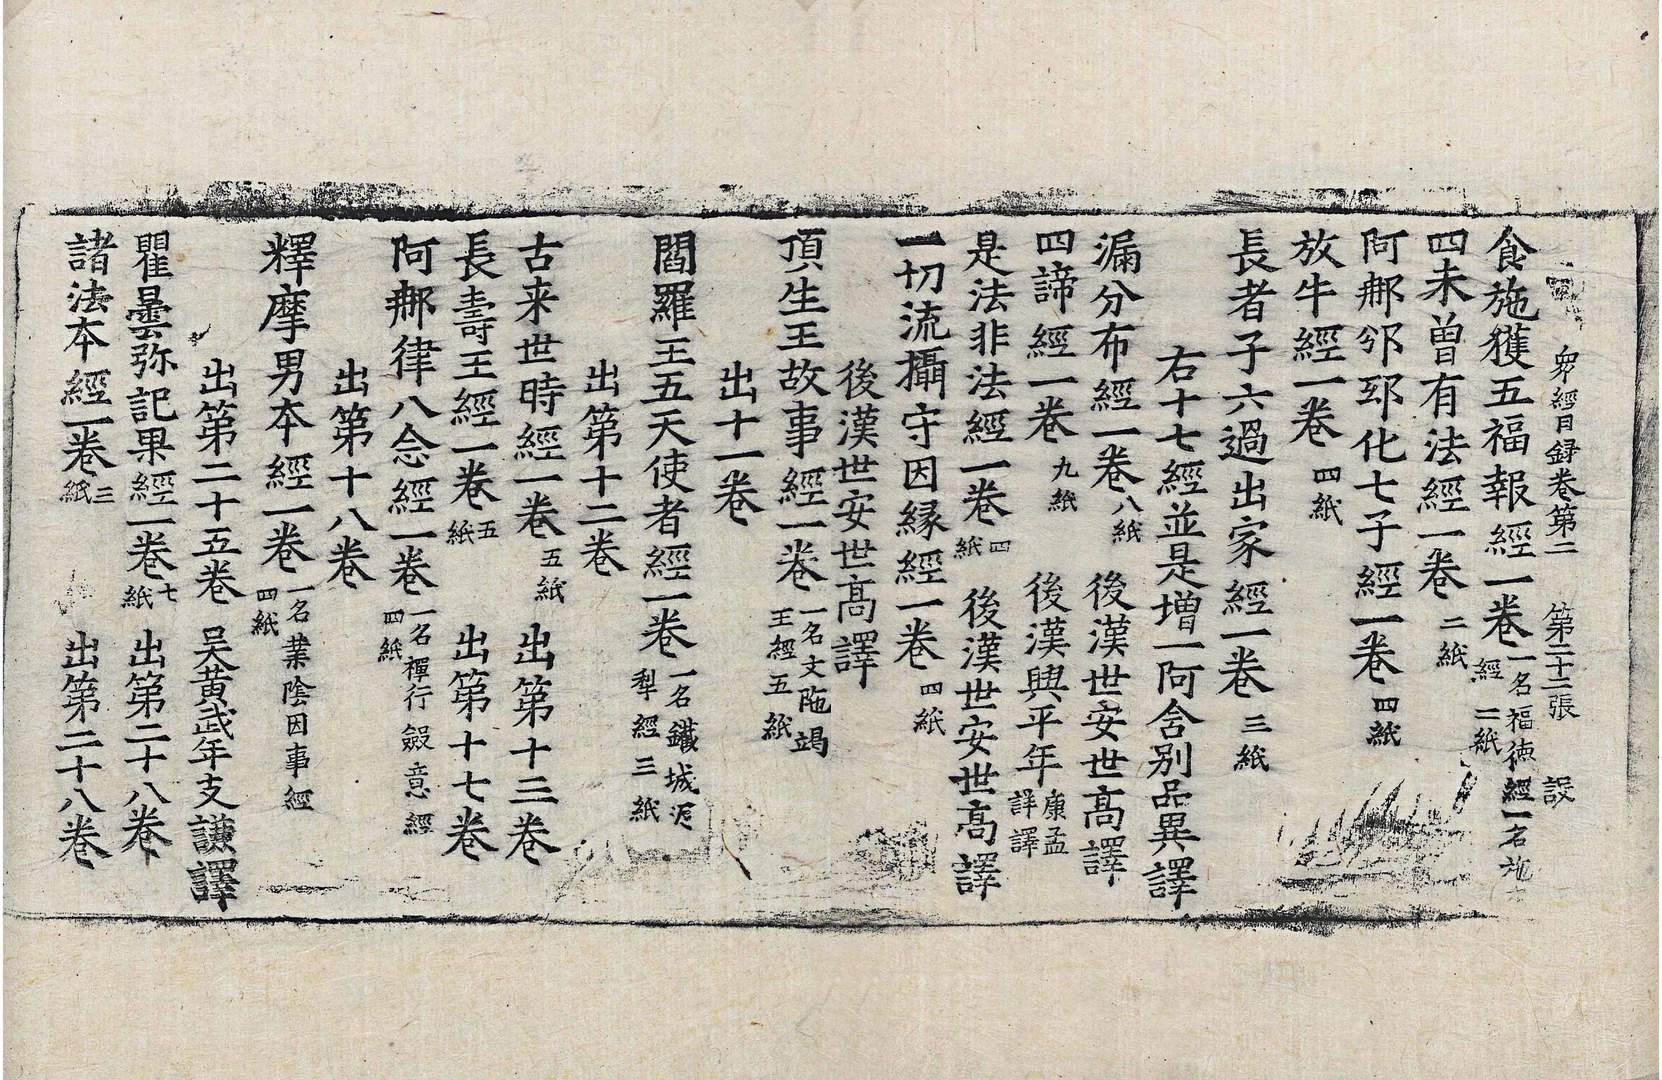 眾經目録卷第二 第二十二張 設
食施獲五福報經一卷 一名福徳經一名施 經 二紙
四未曾有法經一卷 二紙
阿𨚗邠邸化七子經一卷 四紙
放牛經一卷 四紙
長者子六過出家經一卷 三紙
右十七經並是增一阿含別品異譯
漏分布經一卷 八紙 後漢世安世高譯
四諦經一卷 九紙 後漢興平年康孟詳譯
是法非法經一卷 四紙 後漢世安世高譯
一切流攝守因縁經一卷 四紙
後漢世安世高譯
頂生王故事經一卷 一名文陁竭王經五紙
出十一卷
閻羅王五天使者經一卷 一名鐵城泥犁經三紙
出第十二卷
古来世時經一卷 五紙 出第十三卷
長壽王經一卷 五紙 出第十七卷
阿𨚗律八念經一卷 一名禪行斂意經四紙
出第十八卷
釋摩男本經一卷 一名業陰因事經四紙
出第二十五卷 吴黄武年支謙譯
瞿曇弥記果經一卷 七紙 出第二十八卷
諸法本經一卷 三紙 出第二十八卷